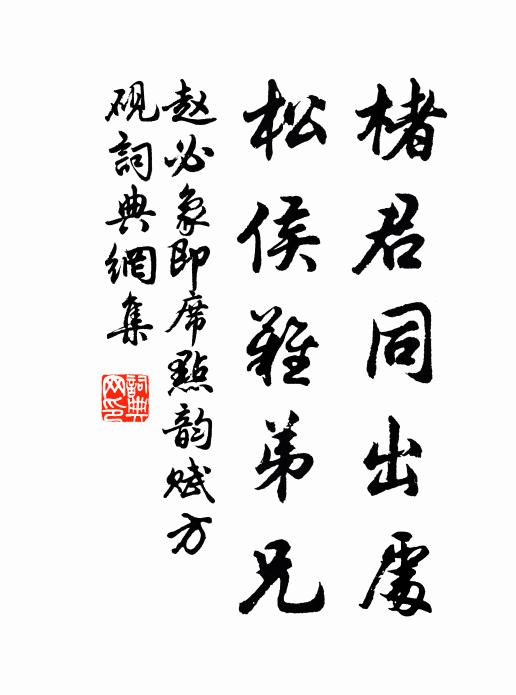 楮君同出處
松侯難弟兄
赵必象即席點韵赋方
硯詞典網集
詞典网印